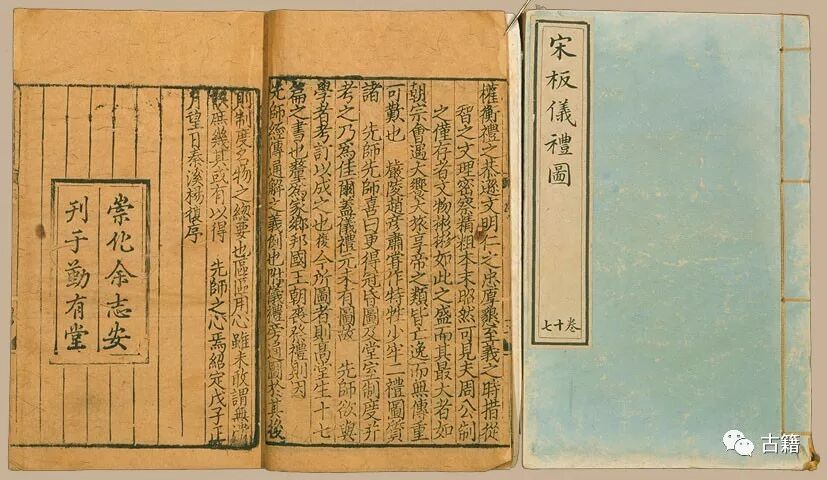 宋板儀禮圖
七十卷
權衡禮之恭遜文明仁之忠厚懇至義之時措從
智之文理密察精粗本末昭然可見夫周公制
之僅存者文物彬彬如此之盛而其最大者如
朝宗會遇大饗大旅享帝之類皆亡逸而無傳重
可歎也 嚴陵趙彥肅嘗作特牲少牢二禮圖質
諸 先師先師喜曰更得冠昏圖及堂室制度并
考之乃爲佳爾蓋儀禮元未有圖故 先師欲與
學者考訂以成之也後今所圖者則高堂生十七
篇之書也釐爲家鄉邦國王朝喪祭禮則因
先師經傳通解之義例也附儀禮旁通圖於其後
則制度名物之緫要也區區用心雖未敢謂無遺
庶幾其或有以得 先師之心焉紹定戊子正
月望日秦溪楊復序
崇化余志安
刊于勤有堂
古籍